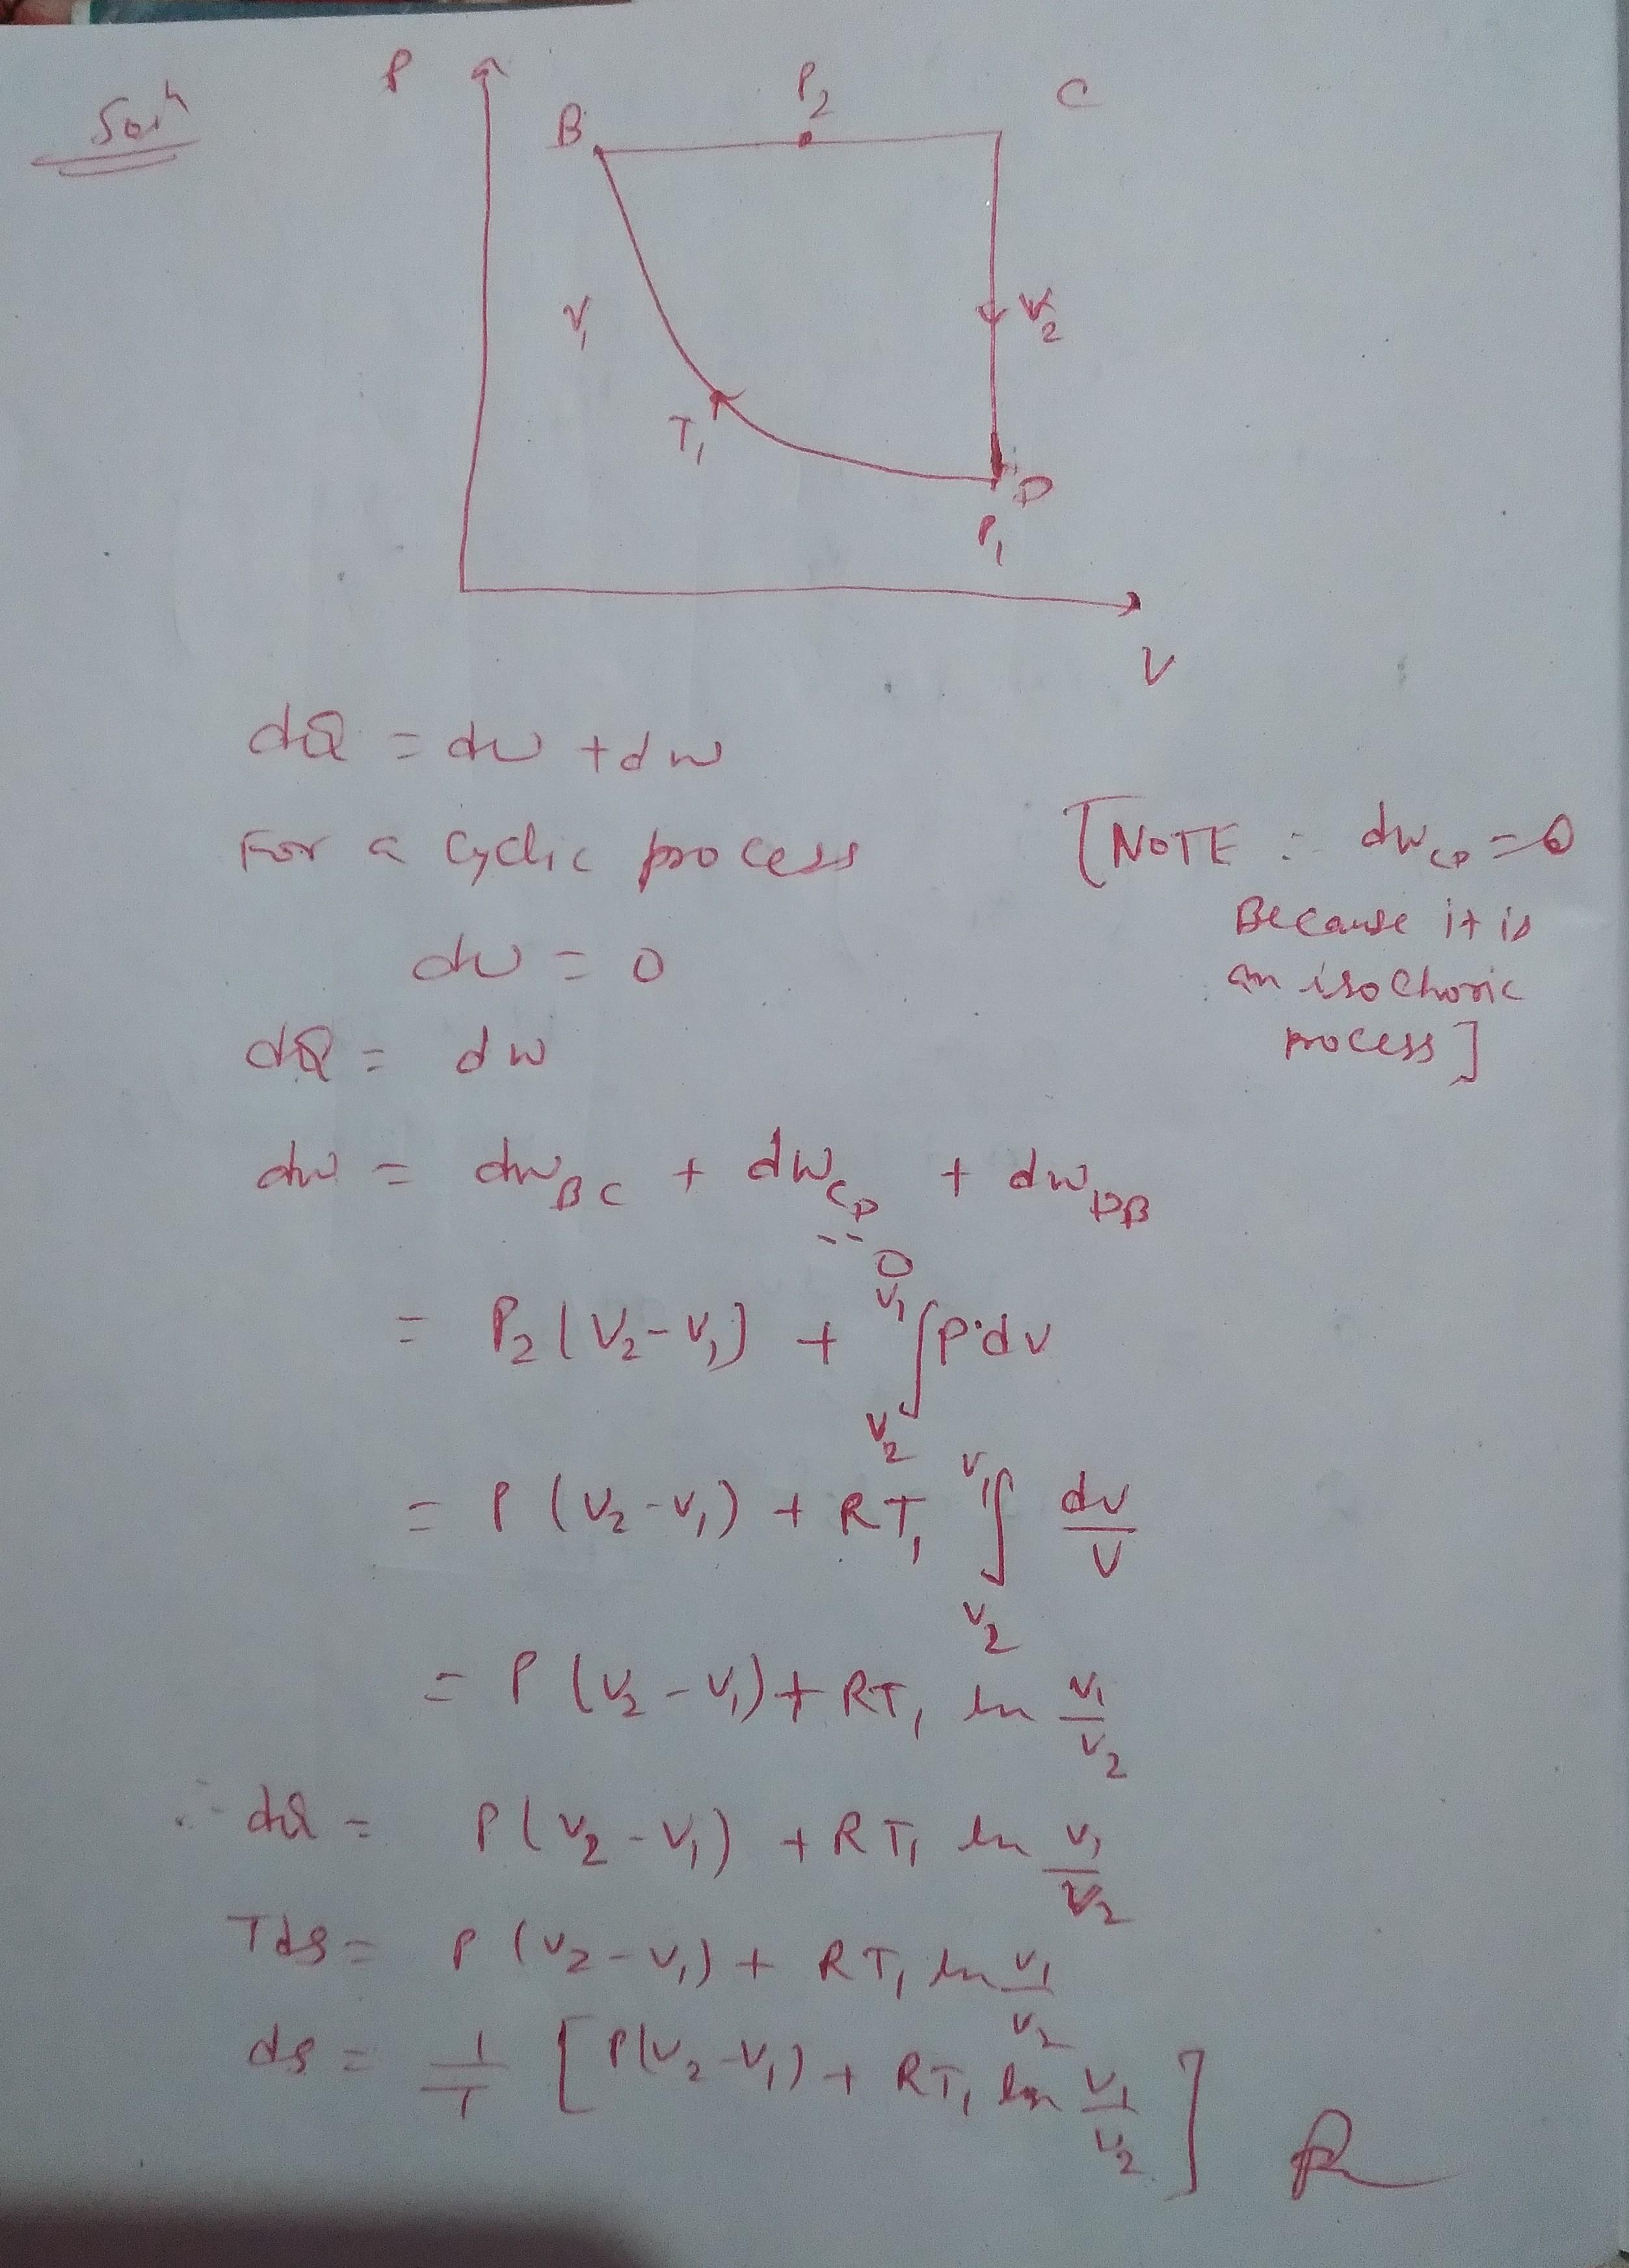 Solⁿ
P
B
P₂
C
V₁
V₂
T₁
D
P₁
V
dQ = du + dw
For a cyclic process
du = 0
dQ = dw
[NOTE :- dw_CD = 0
Because it is
an isochoric
process]
dw = dw_BC + dw_CD + dw_DB
= 0
= P₂(V₂-V₁) + ∫_{V₂}^{V₁} P·dv
= P(V₂-V₁) + RT₁ ∫_{V₂}^{V₁} dv/V
= P(V₂-V₁) + RT₁ ln V₁/V₂
∴ dQ = P(V₂-V₁) + RT₁ ln V₁/V₂
Tds = P(V₂-V₁) + RT₁ ln V₁/V₂
ds = 1/T [P(V₂-V₁) + RT₁ ln V₁/V₂]